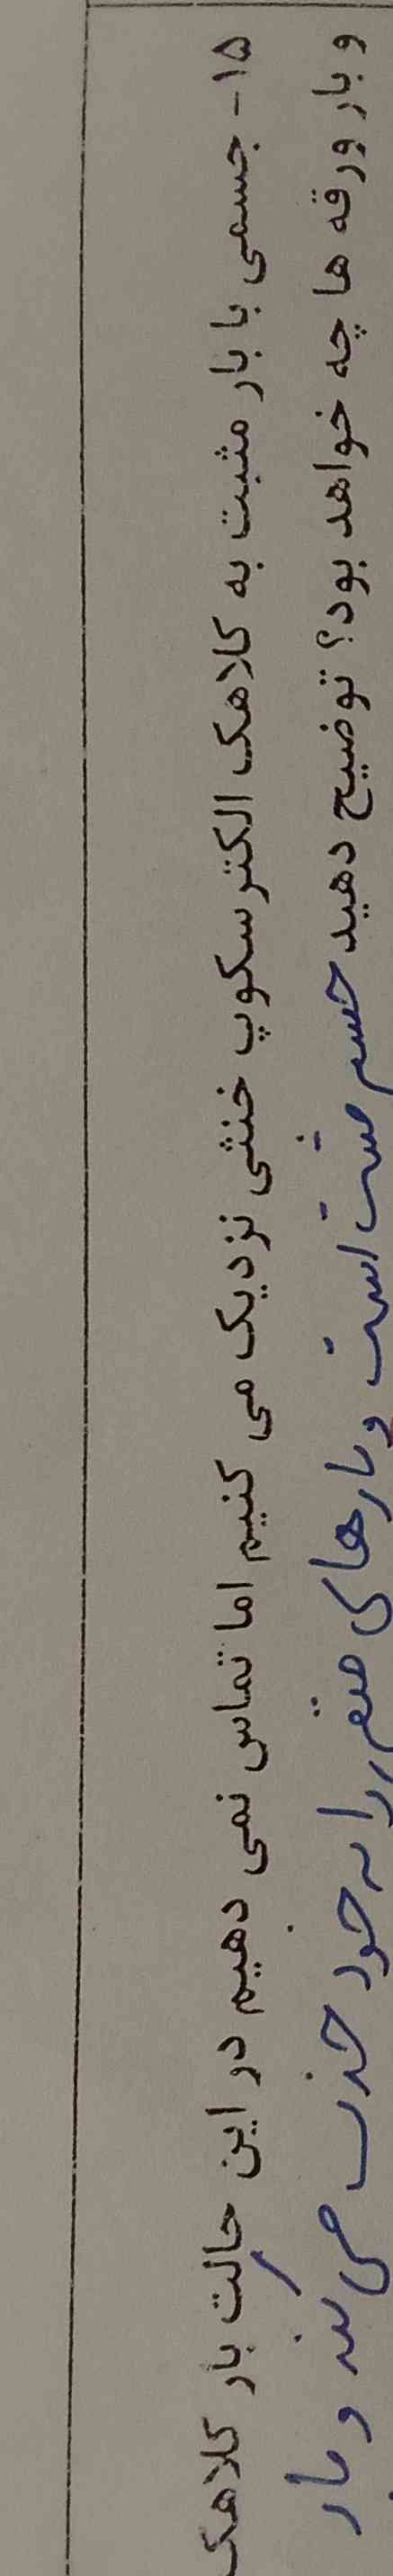 ۱۵- جسمی با بار مثبت به کلاهک الکترسکوپ خنثی نزدیک می کنیم اما تماس نمی دهیم در این حالت بار کلاهک
و بار ورقه ها چه خواهد بود؟ توضیح دهید جسم مثبت است و بارهای منفی را به خود جذب می کند و بار